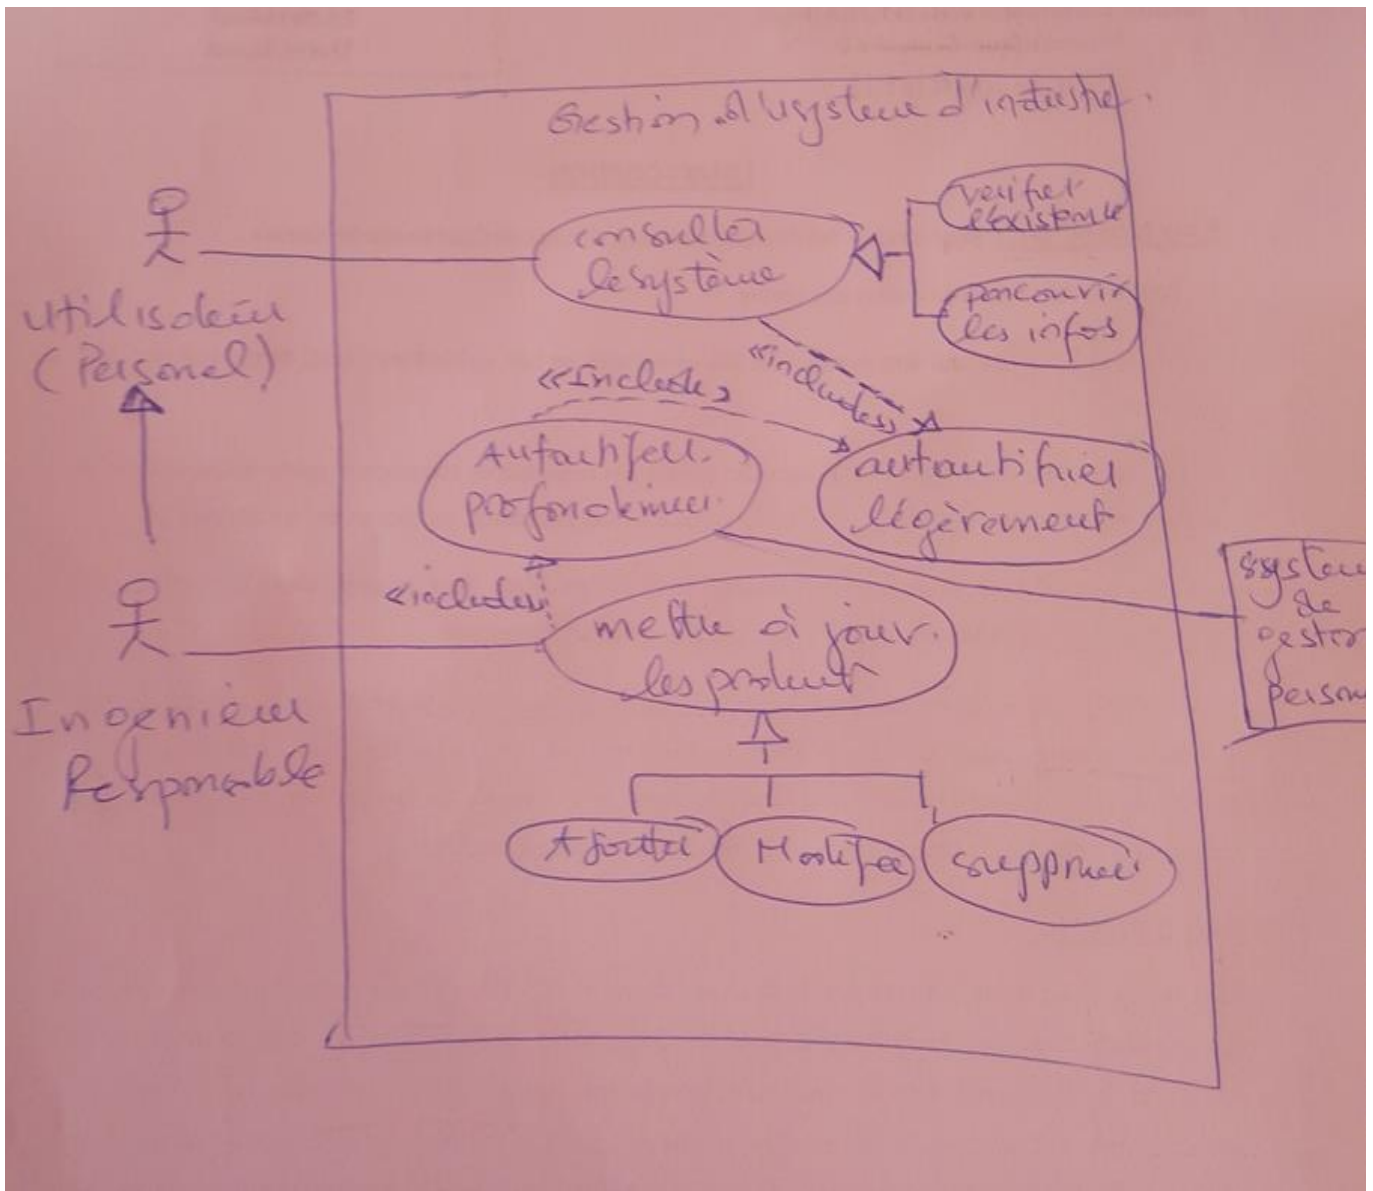 Gestion d'un système d'industrie.
verifier
l'existence
consulter
le système
parcourir
les infos
utilisateur
(Personel)
«include»
«include»
Autantifier
profondement
autantifier
légèrement
système
de
gestor
person
«include»
mettre à jour.
les produit
Ingenieur
Responsable
Ajouter
Modifier
supprimer